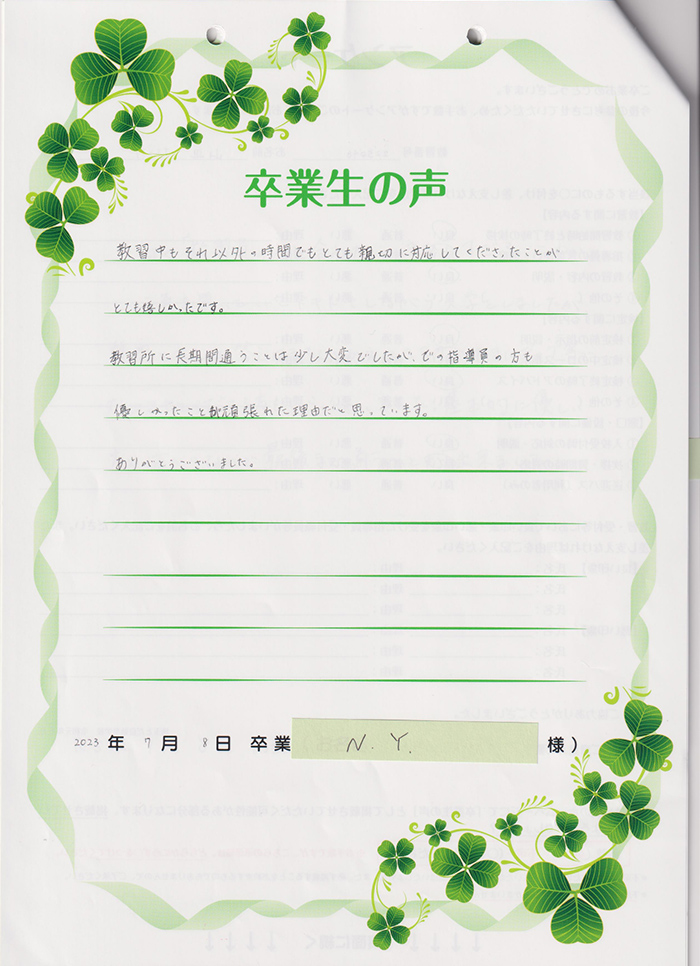 卒業生の声
教習中もそれ以外の時間でもとても親切に対応してくださったことが
とても嬉しかったです。
教習所に長期間通うことは少し大変でしたが、どの指導員の方も
優しかったこと頑張れた理由だと思っています。
ありがとうございました。
2023年 7月 8日 卒業 N.Y. 様）